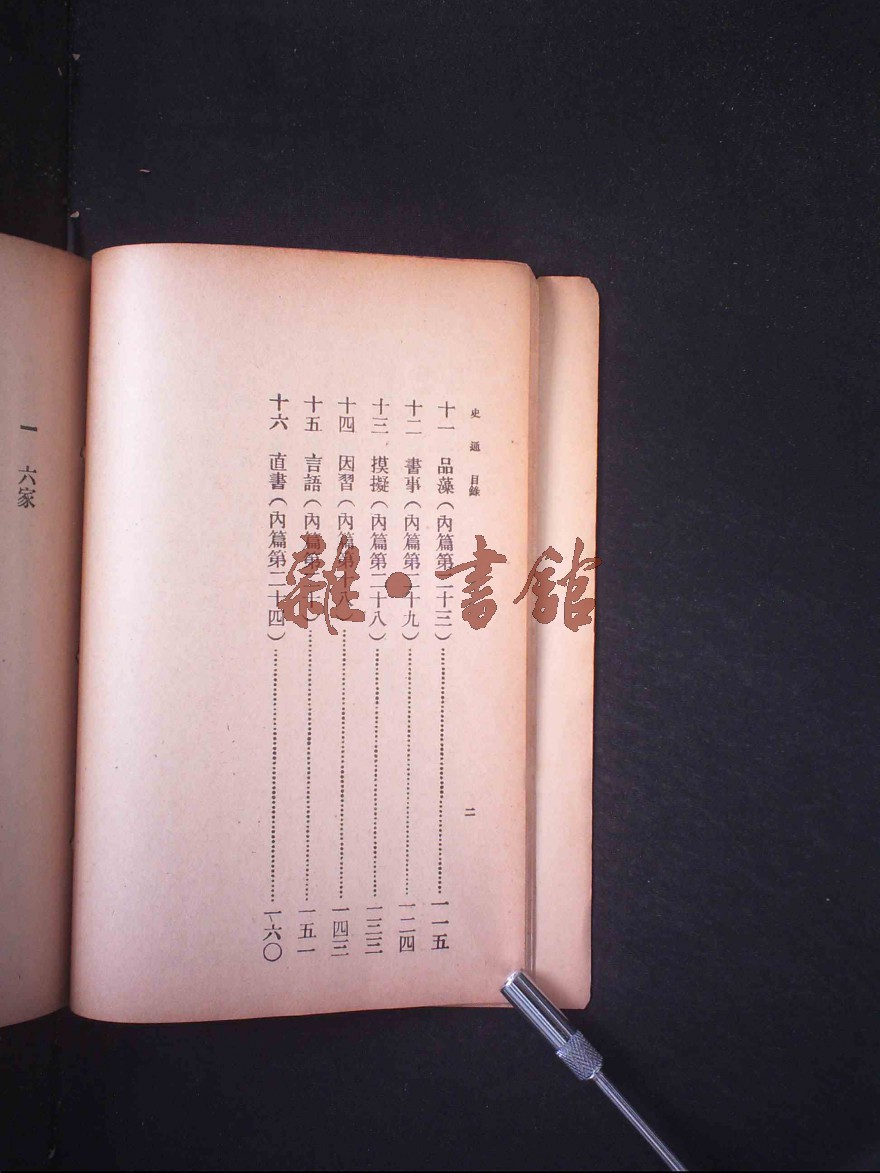 史通 目錄 二
十一 品藻(內篇第二十三)……一一五
十二 書事(內篇第二十九)……一二四
十三 摸擬(內篇第二十八)……一三三
十四 因習(內篇第十八)……一四三
十五 言語(內篇第二十)……一五一
十六 直書(內篇第二十四)……一六〇
一 六家
雜·書館